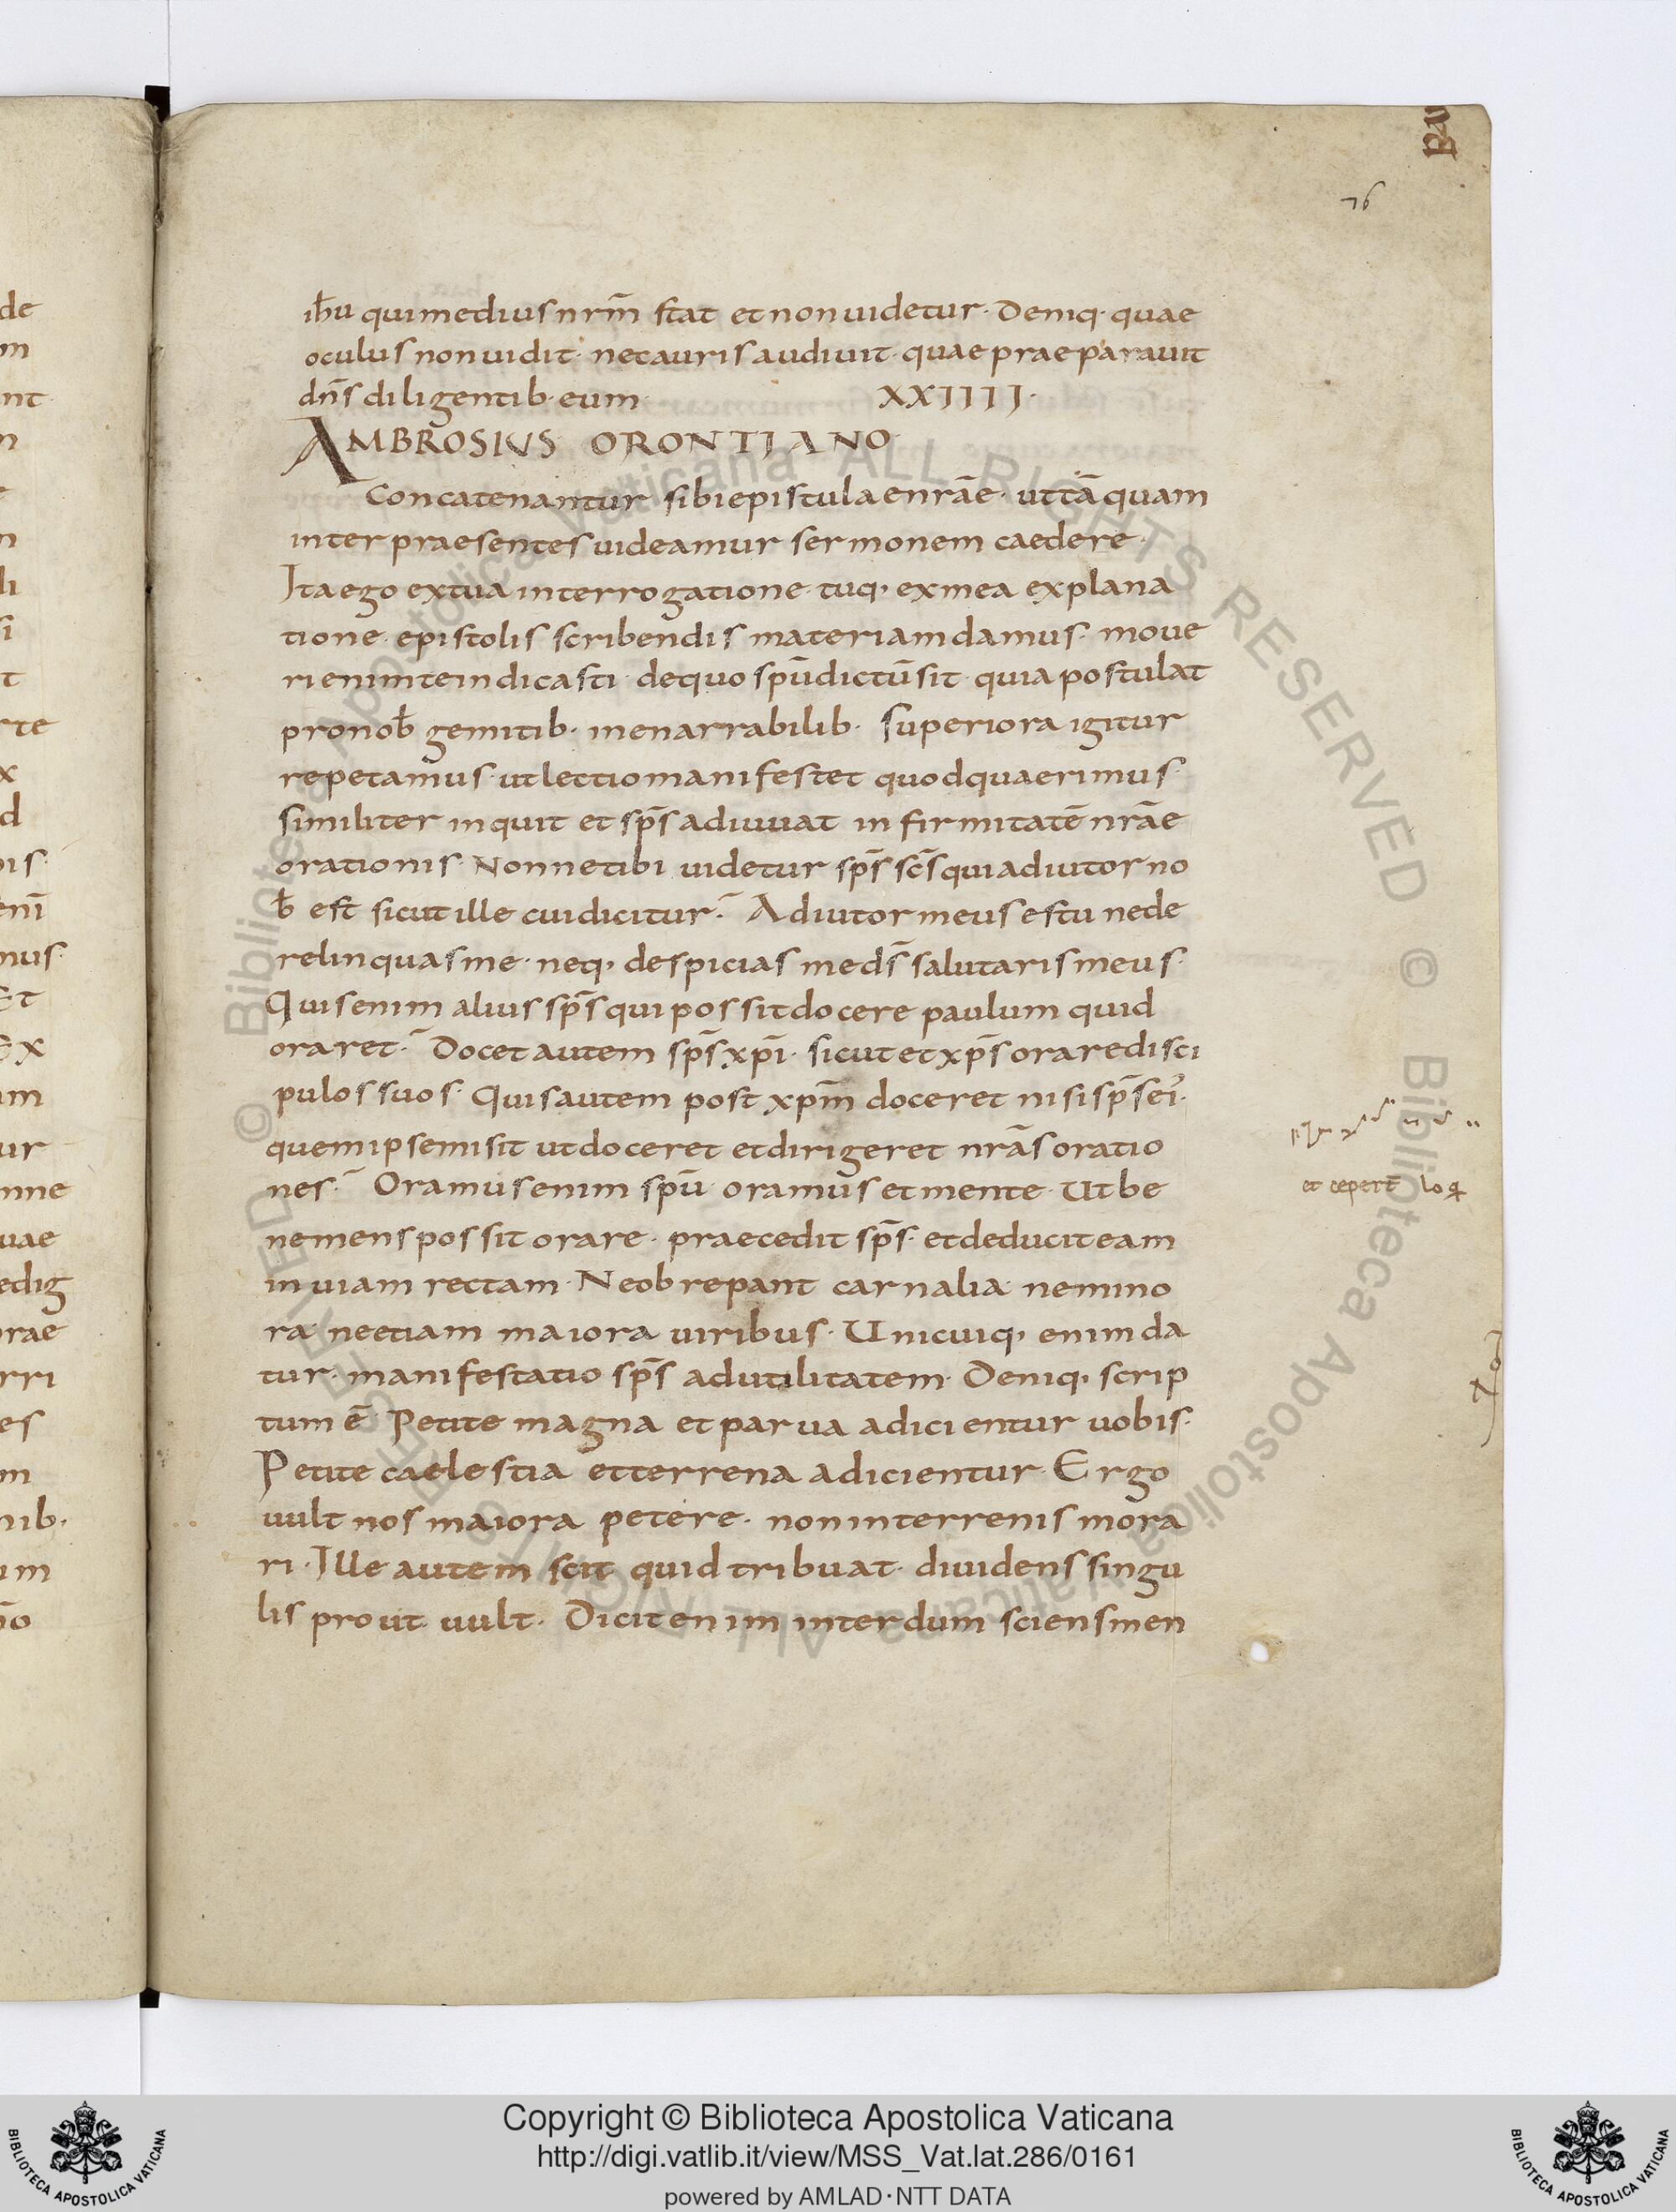 76
ihu qui medius nrm̄ stat et non uidetur · Deniq· quae
oculus non uidit · nec auris audiuit · quae praeparauit
dn̄s diligentib· eum XXIIII·
AMBROSIUS ORONTIANO
Concatenantur sibi epistulae nrāe · ut tā quam
inter praesentes uideamur sermonem caedere ·
Ita ego ex tua interrogatione · tuq, ex mea explana
tione · epistolis scribendis materiam damus · moue
ri enim te indicasti · de quo spū dictū sit · quia postulat
pro nob̄ gemitib· inenarrabilib· Superiora igitur
repetamus · ut lectio manifestet quod quaerimus ·
similiter inquit et sp̄s adiuuat infirmitatē nrāe
orationis · Nonne tibi uidetur sp̄s sc̄s qui adiutor no
b̄ est sicut ille cui dicitur · Adiutor meus es tu ne de
relinquas me · neq, despicias me ds̄ salutaris meus ·
Quis enim alius sp̄s qui possit docere paulum quid
oraret · Docet autem sp̄s xp̄i · sicut et xp̄s orare disci
pulos suos · Quis autem post xpm̄ doceret nisi sp̄s ei ·
quem ipse misit ut doceret et dirigeret nrās oratio
nes · Oramus enim spū oramus et mente · Ut be
ne mens possit orare · praecedit sp̄s · et deducit eam
in uiam rectam · Ne obrepant carnalia · ne mino
ra · ne etiam maiora uiribus · Unicuiq, enim da
tur · manifestatio sp̄s ad utilitatem · Deniq, scrip
tum ē · Petite magna et parua adicientur uobis ·
Petite caelestia et terrena adicientur · Ergo
uult nos maiora petere · non in terrenis mora
ri · Ille autem scit quid tribuat · diuidens singu
lis prout uult · Dicit enim interdum sciens men
de
m
nt
te
x
d
nus
Et
Ex
um
ur
nne
uae
edig
rae
rri
es
m
nib·
um
© Biblioteca Apostolica Vaticana ALL RIGHTS RESERVED © Biblioteca Apostolica Vaticana ALL RIGHTS RESERVED
Copyright © Biblioteca Apostolica Vaticana
http://digi.vatlib.it/view/MSS_Vat.lat.286/0161
powered by AMLAD·NTT DATA
BIBLIOTECA APOSTOLICA VATICANA
BIBLIOTECA APOSTOLICA VATICANA